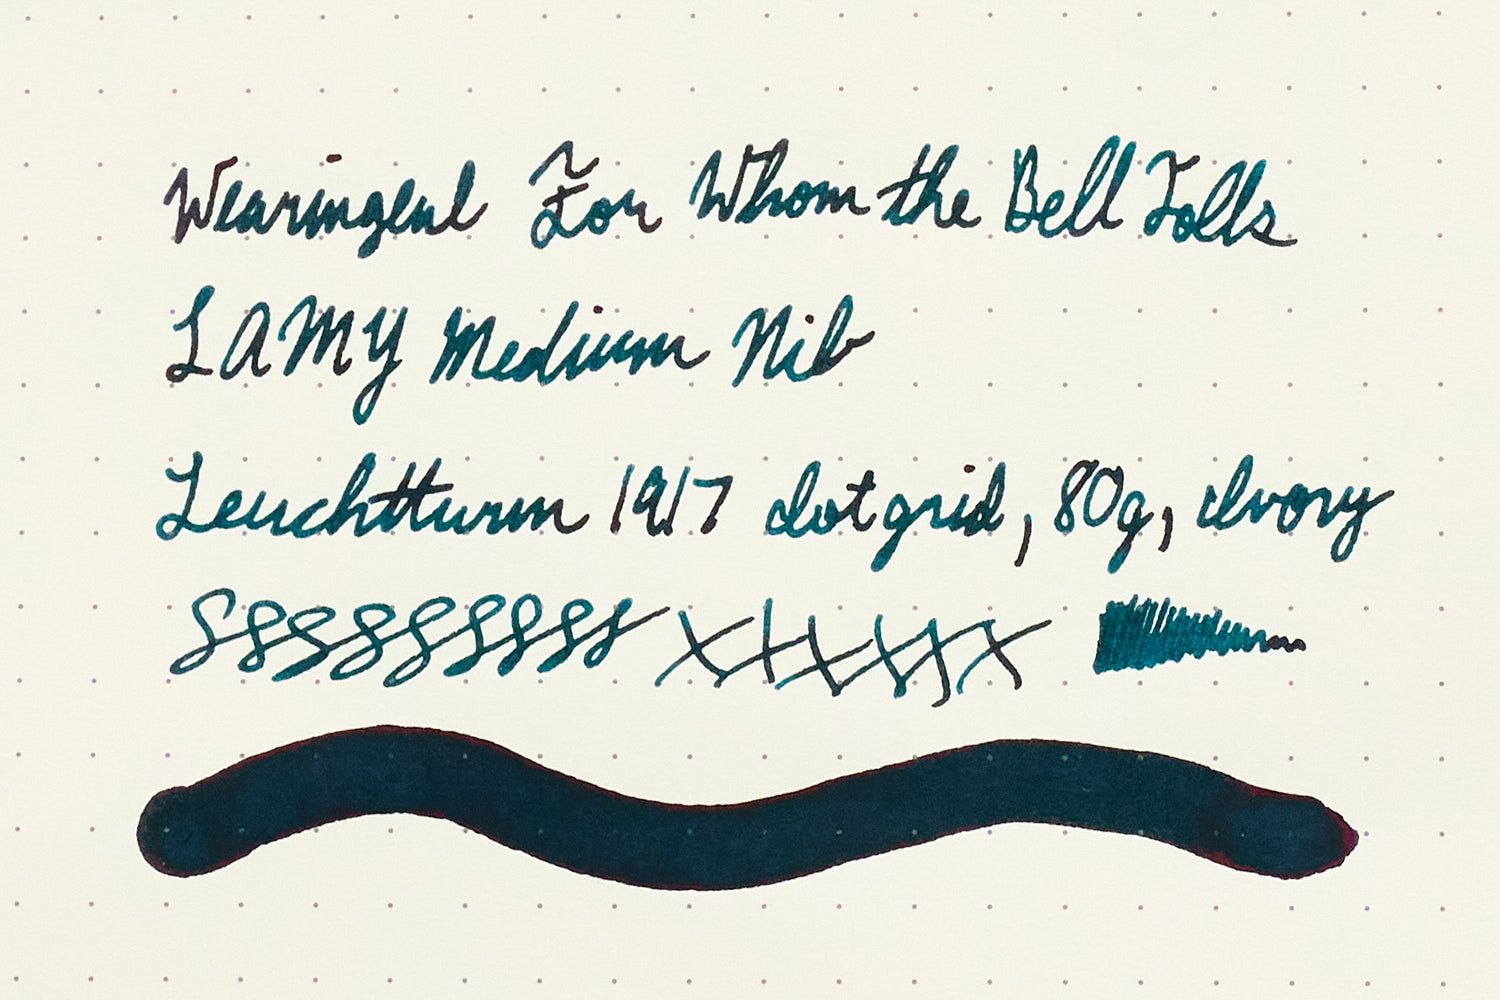 Wearingeul For Whom the Bell Tolls
LAMY Medium Nib
Leuchtturm 1917 dot grid, 80g, Ivory